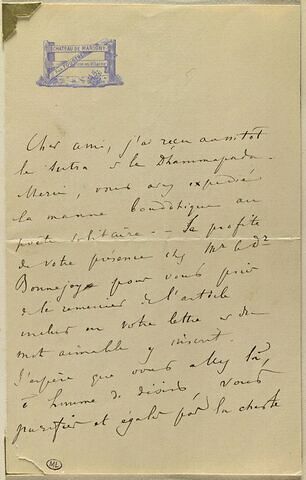 CHATEAU DE MARIGNY
Cher ami, j'ai reçu aussitôt
le Sutra & le Dhammapada.
Merci, vous avez expédié
la manne bouddhique au
poète solitaire. — Je profite
de votre présence chez Mr le Dr
Bonnejoy pour vous prier
de le remercier de l'article
inclus en votre lettre & du
mot aimable y inscrit.
J'espère que vous allez là,
ô homme de désirs vous
purifier et égaler par la chaste
ML